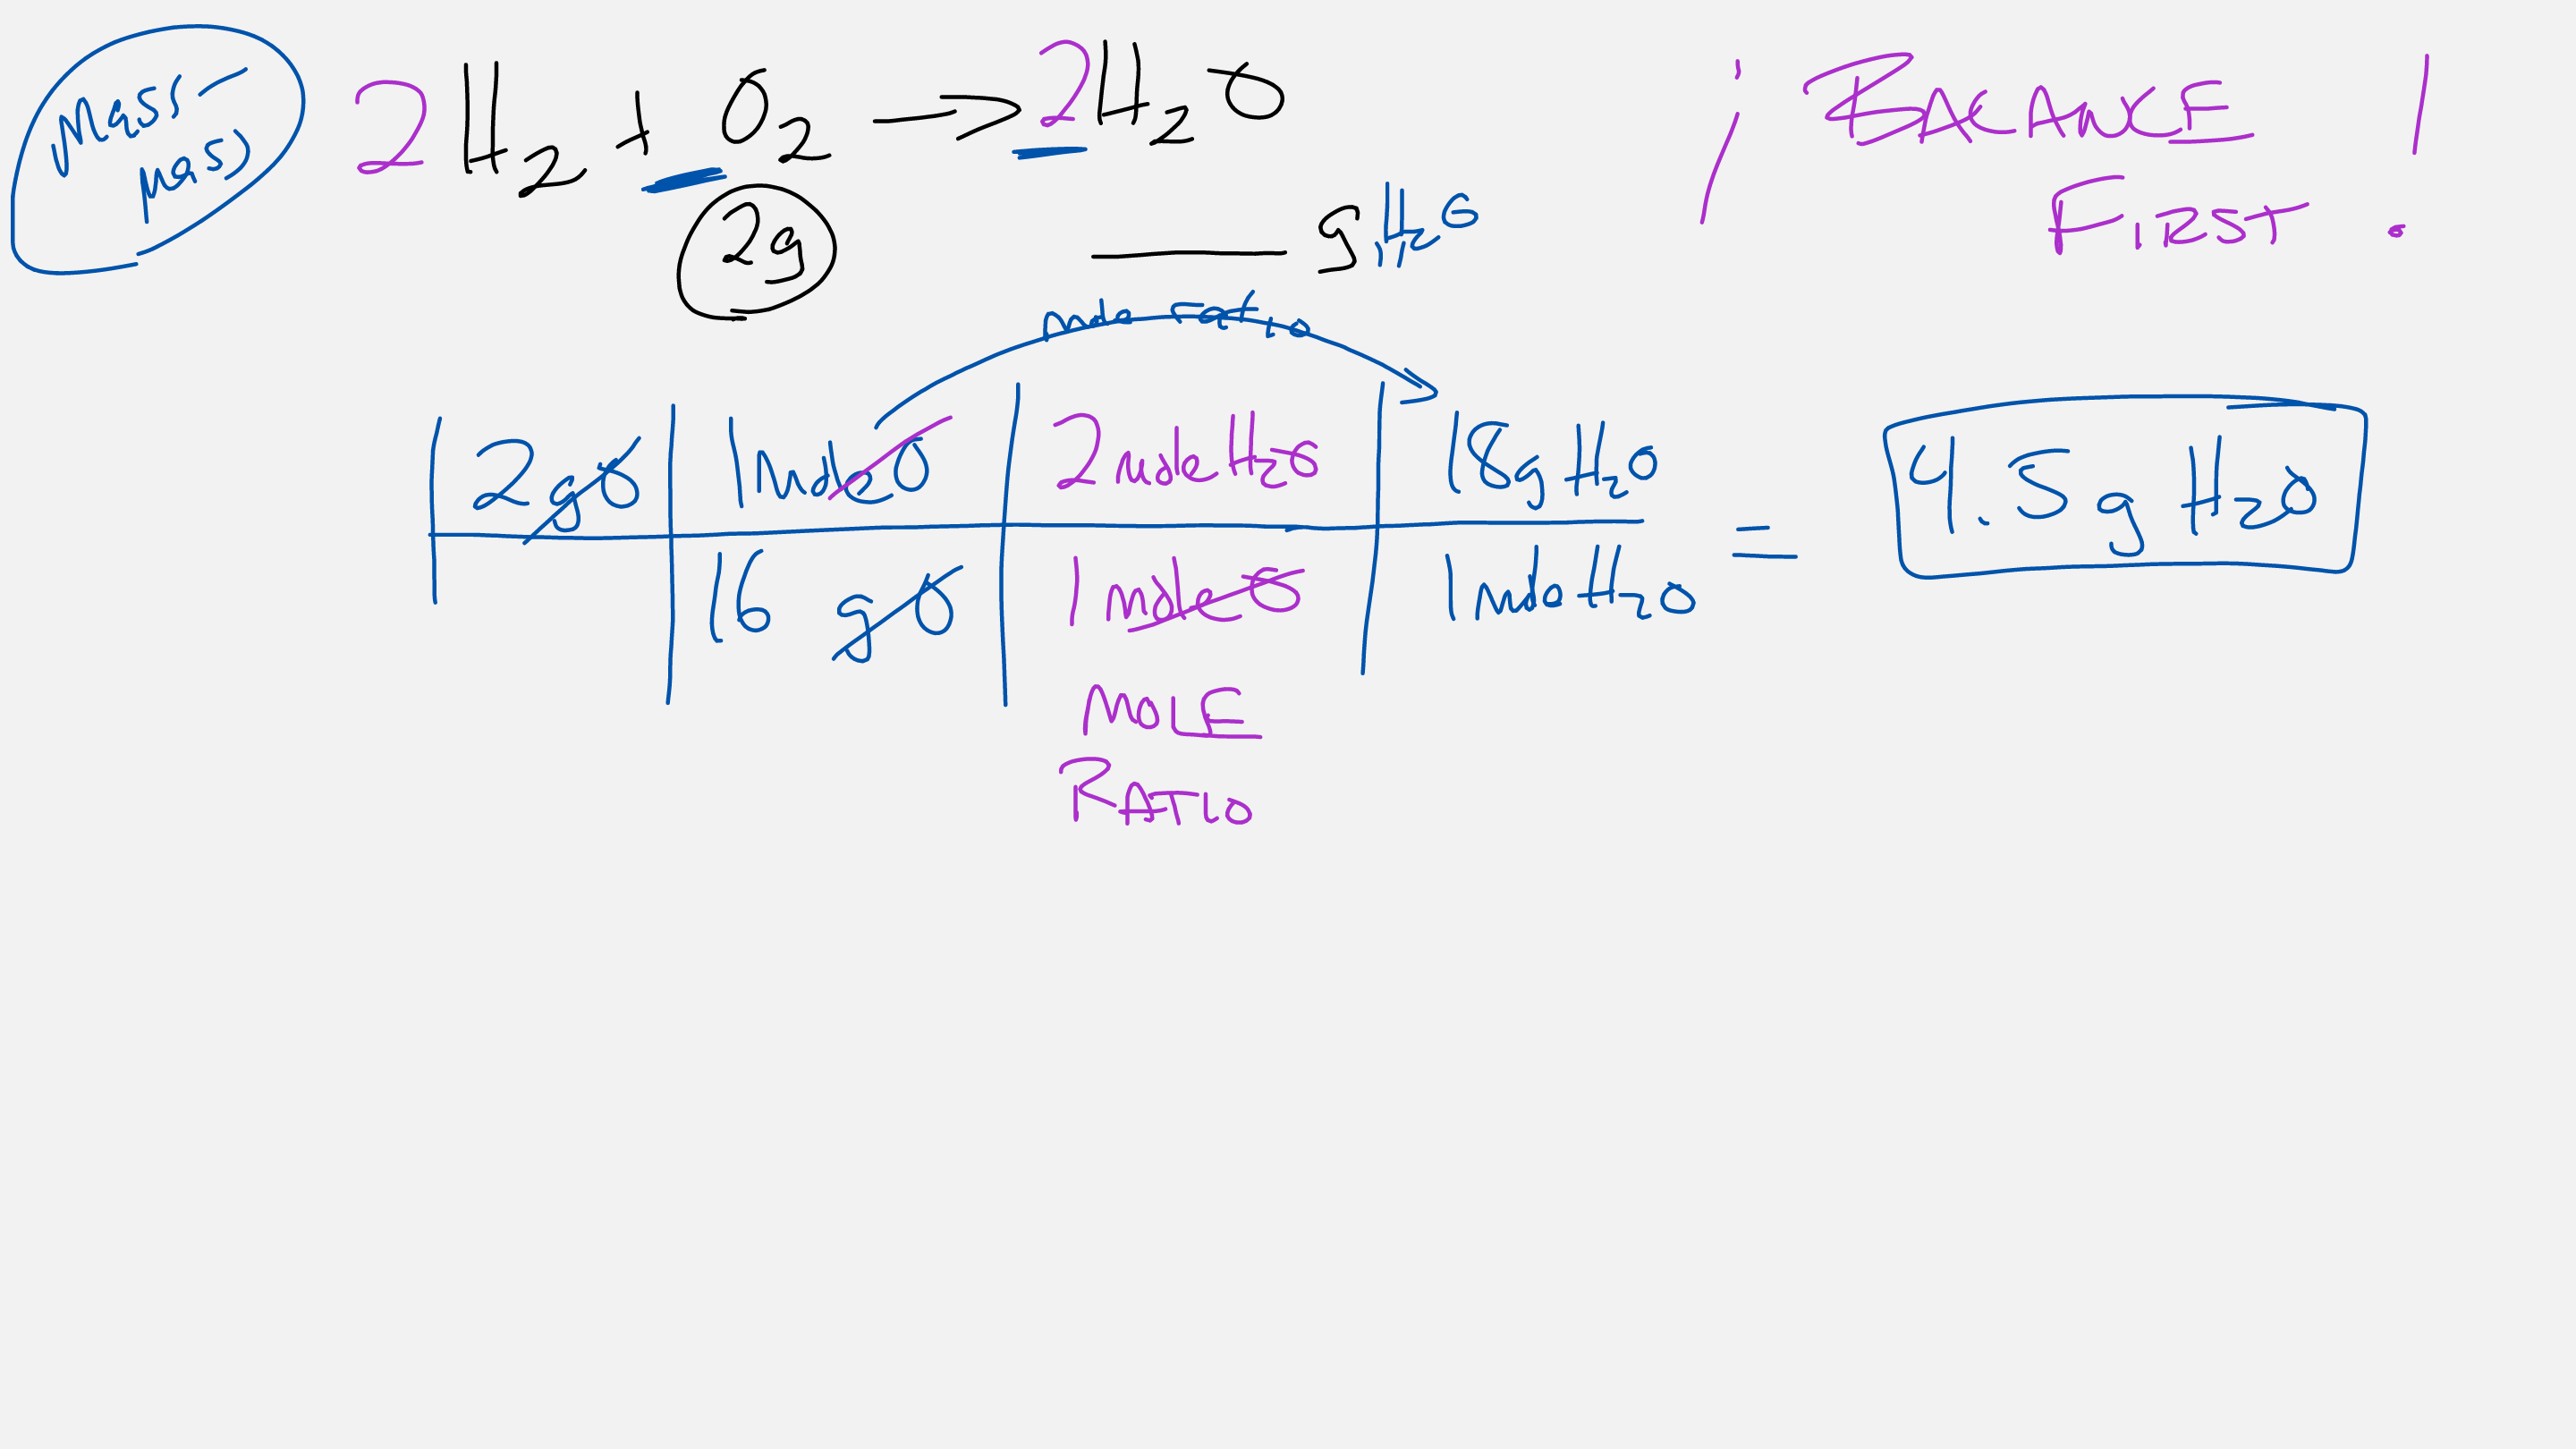 Mass-
mass
2H₂ + O₂ → 2H₂O
¡ BALANCE
FIRST !
2g
____ g H₂O
mole ratio
2gO | 1moleO | 2moleH₂O | 18gH₂O
16 gO | 1moleO | 1moleH₂O
= 4.5g H₂O
MOLE
RATIO